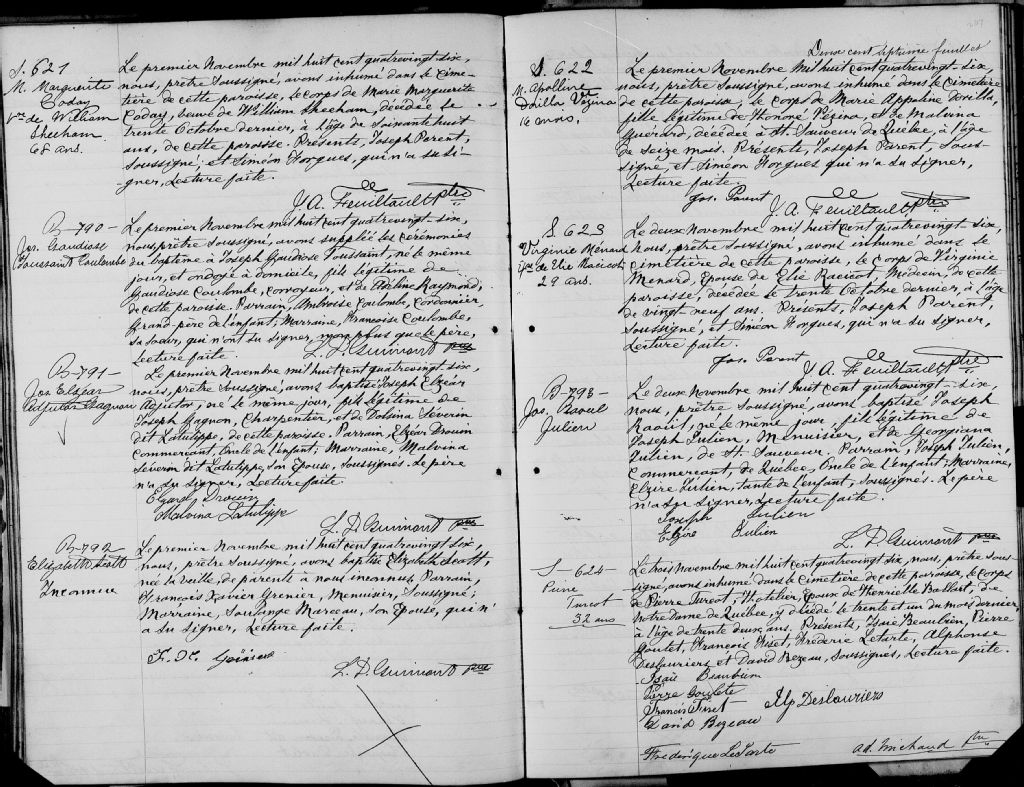 S. 621
M. Marguerite
Coday
Vve de William
Sheeham
68 ans.
Le premier Novembre mil huit cent quatrevingt six,
nous, prêtre soussigné, avons inhumé dans le cime-
tière de cette paroisse, le corps de Marie Marguerite
Coday, veuve de William Sheeham, décédée le
trente Octobre dernier, à l'âge de soixante huit
ans, de cette paroisse. Présents, Joseph Parent,
soussigné, et Siméon Horgues, qui n'a su si-
gner, Lecture faite.
J. A. Feuiltault ptre
B-790-
Jos. Gaudiose
Toussaint Coulombe
Le premier Novembre mil huit cent quatrevingt six,
nous, prêtre soussigné, avons suppléé les cérémonies
du baptême à Joseph Gaudiose Toussaint, né le même
jour, et ondoyé à domicile, fils légitime de
Gaudiose Coulombe, corroyeur, et de Adeline Raymond,
de cette paroisse. Parrain, Ambroise Coulombe, Cordonnier,
Grand-père de l'enfant; Marraine, Françoise Coulombe,
sa soeur, qui n'ont su signer, non plus que le père,
Lecture faite. L. P. Guimont ptre
B-791-
Jos Elzéar
Adjutor Gagnon
Le premier Novembre mil huit cent quatrevingt six,
nous, prêtre soussigné, avons baptisé Joseph Elzéar
Adjutor, né le même jour, fils légitime de
Joseph Gagnon, Charpentier, et de Délvina Séverin
dit Latulippe, de cette paroisse. Parrain, Elzéar Drouin
Commercant, Oncle de l'enfant; Marraine, Malvina
Séverin dit Latulippe, son Epouse, soussignés. Le père
n'a su signer, Lecture faite.
Elzear Drouin
Malvina Latulippe
L. P. Guimont ptre
B-792
Elizabeth Scott
Inconnue
Le premier Novembre mil huit cent quatrevingt six,
nous, prêtre soussigné, avons baptisé Elizabeth Scott,
née la veille, de parents à nous inconnus, Parrain,
François Xavier Grenier, Menuisier, Soussigné;
Marraine, Soulange Marceau, son Epouse, qui n'
a su signer, Lecture faite.
F. X. Grénier
L. P. Guimont ptre
Deux cent septième feuillet
S. 622
M. Apolline
Dorilla Vézina
16 mois.
Le premier Novembre mil huit cent quatrevingt-six,
nous, prêtre soussigné, avons inhumé dans le cimetière
de cette paroisse, le corps de Marie Appoline Dorilla,
fille légitime de Honoré Vézina, et de Malvina
Guérard, décédée à St Sauveur de Québec, à l'âge
de seize mois. Présents, Joseph Parent, sous-
signé, et Siméon Horgues qui n'a su signer,
Lecture faite.
Jos. Parent
J. A. Feuiltault ptre
S. 623
Virginie Ménard
Epse de Elie Racicot
29 ans.
Le deux Novembre mil huit cent quatrevingt six,
nous, prêtre soussigné, avons inhumé dans le
cimetière de cette paroisse, le corps de Virginie
Menard, Epouse de Elie Racicot, Médecin, de cette
paroisse, décédée le trente Octobre dernier, à l'âge
de vingt neuf ans, Présents, Joseph Parent,
soussigné, et Siméon Horgues, qui n'a su signer,
Lecture faite.
Jos. Parent
J. A. Feuiltault ptre
B-793-
Jos. Raoul
Julien
Le deux Novembre mil huit cent quatrevingt-six,
nous, prêtre soussigné, avons baptisé Joseph
Raoul, né le même jour, fils légitime de
Joseph Julien, Menuisier, et de Georgiana
Julien, de St. Sauveur. Parrain, Joseph Julien,
Commercant, de Québec, Oncle de l'enfant; Marraine,
Elzire Julien, tante de l'enfant, soussignés. Le père
n'a su signer, Lecture faite.
Joseph Julien
Elzire Julien
L. P. Guimont ptre
S-624-
Pierre
Turcot
32 ans
Le trois Novembre mil huit cent quatrevingt six, nous, prêtre sous-
signé, avons inhumé dans le cimetière de cette paroisse, le corps
de Pierre Turcot, Hôtelier, Epoux de Henriette Vallert, de
Notre Dame de Québec, y décédé le trente et un du mois dernier,
à l'âge de trente deux ans. Présents, Isaie Beaubien, Pierre
Goulet, François Fiset, Frédéric Letarte, Alphonse
Deslauriers et David Bezeau, soussignés, Lecture faite.
Isaïe Beaubien
Pierre Goulete
Francis Fiset Alp Deslauriers
David Bezeau
Frédérique LeTarte Ad. Michaud ptre